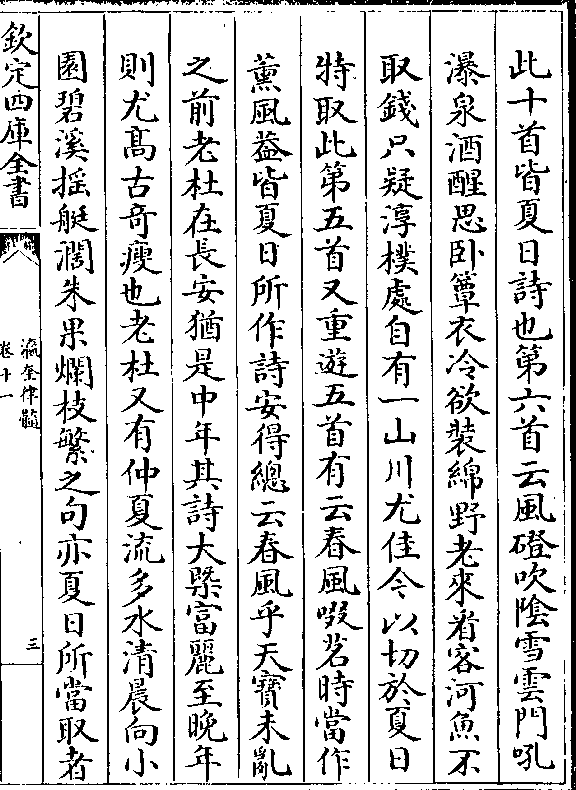 此十首皆夏日詩也第六首云風磴吹隂雪雲門吼
瀑泉酒醒思卧簟衣冷欲裝綿野老來㸔客河魚不
取錢只疑淳樸處自有一山川尤佳今以切於夏日
特取此第五首又重遊五首有云春風啜茗時當作
薫風葢皆夏日所作詩安得總云春風乎天寳未亂
之前老杜在長安猶是中年其詩大槩富麗至晚年
則尤髙古奇瘦也老杜又有仲夏流多水清晨向小
園碧溪揺艇濶朱果爛枝繁之句亦夏日所當取者
欽定四庫全書
瀛奎律髓
卷十一
三